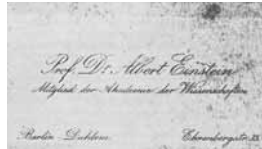 Prof. Dr. Albert Einstein
Mitglied der Akademie der Wissenschaften
Berlin-Dahlem Ehrenbergstr. 33